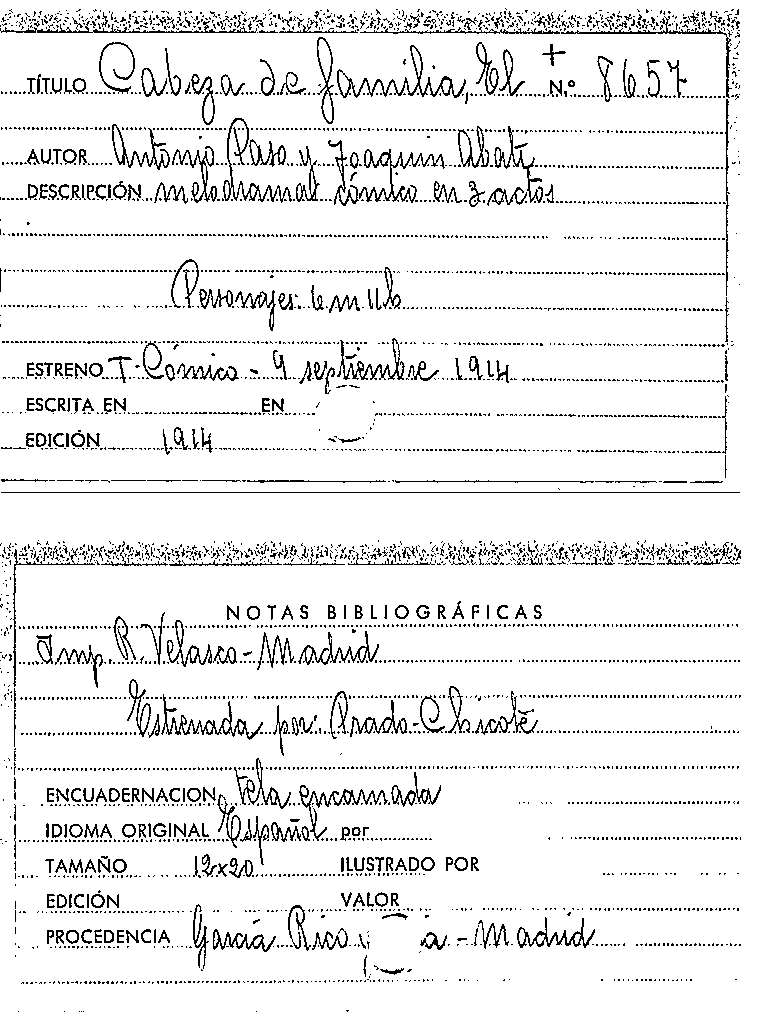 TÍTULO Cabeza de familia, El + N.º 8657
AUTOR Antonio Paso y Joaquin Abati
DESCRIPCIÓN melodrama cómico en 3 actos
Personajes: 6 m 11 h
ESTRENO T. Cómico - 9 septiembre 1914
ESCRITA EN EN
EDICIÓN 1914
NOTAS BIBLIOGRÁFICAS
Imp. R. Velasco - Madrid
Estrenada por: Prado-Chicote
ENCUADERNACION tela encarnada
IDIOMA ORIGINAL Español por
TAMAÑO 12x20 ILUSTRADO POR
EDICIÓN VALOR
PROCEDENCIA García Rico y - Madrid